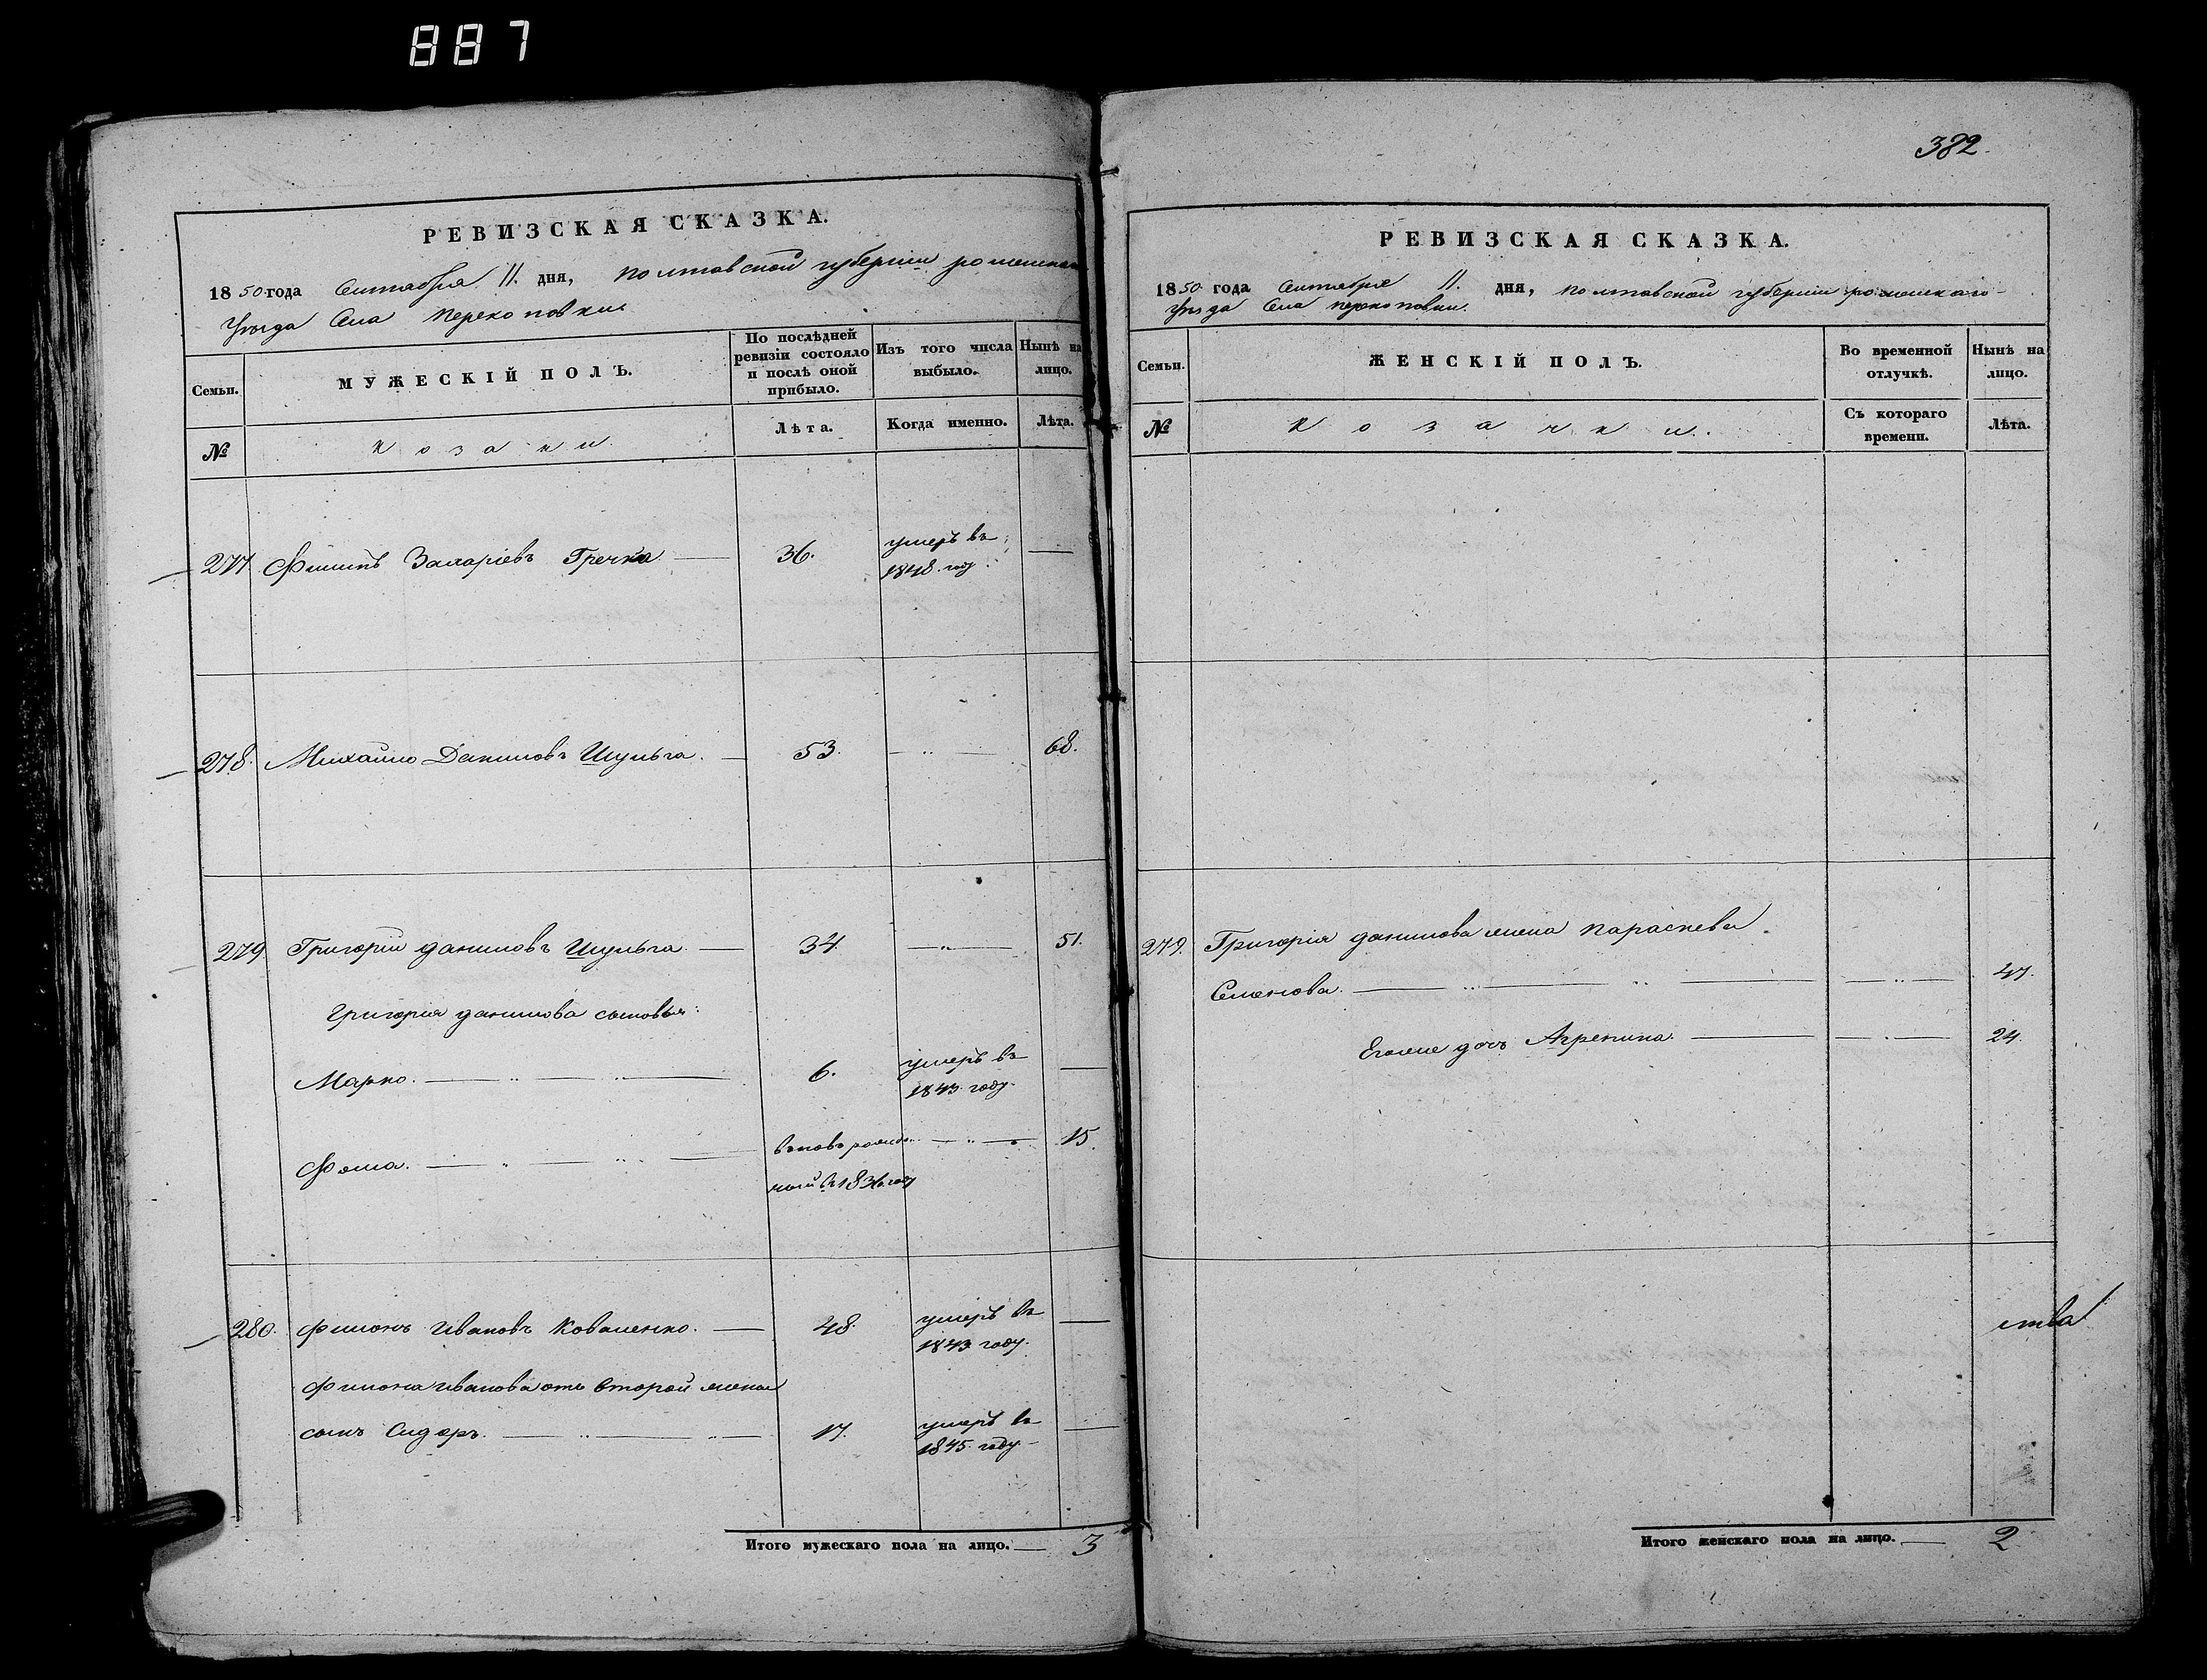 887
РЕВИЗСКАЯ СКАЗКА.
1850 года Сентября 11. дня, полтавской губерніи роменскаго
Уѣзда Села Перекоповки
Семьи.
МУЖЕСКІЙ ПОЛЪ.
По послѣдней ревизіи состояло и послѣ оной прибыло.
Изъ того числа выбыло.
Нынѣ на лицо.
№
козаки.
Лѣта.
Когда именно.
Лѣта.
277 Филипъ Захаріевъ Гречка — 36. умеръ въ —
1848. году.
278. Михайло Даниловъ Шульга. — 53. — „ — 68.
279 Григорій даниловъ Шульга. — 34. — „ — 51.
Григорія данилова сыновья:
Марко. — „ — „ — 6. умеръ въ —
1843. году.
Фома. — „ — „ — вновь рожде- — „ — 15.
ный въ 1836 году
280. филонъ ивановъ Коваленко. — 48. умеръ въ —
1843 году.
филона иванова отъ второй жены
сынъ Сидоръ. — „ — „ — 17. умеръ въ —
1845. году.
Итого мужескаго пола на лицо. — 3
382.
РЕВИЗСКАЯ СКАЗКА.
1850 года Сентября 11. дня, полтавской губерніи роменскаго
Уѣзда Села перекоповки.
Семьи.
ЖЕНСКІЙ ПОЛЪ.
Во временной отлучкѣ.
Нынѣ на лицо.
№
козачки.
Съ котораго времени.
Лѣта.
279. Григорія данилова жена параскева
Семенова. — „ — „ — — „ — 47.
Егоже дочь Агрепина. — — „ — 24.
ства
Итого женскаго пола на лицо. — 2